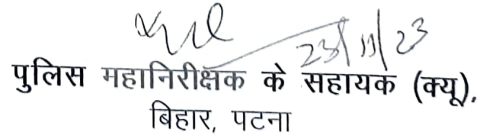 23/11/23
पुलिस महानिरीक्षक के सहायक (क्यू),
बिहार, पटना